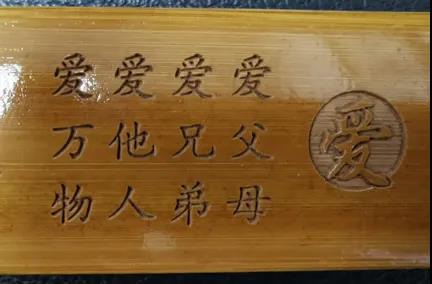 爱
爱父母
爱兄弟
爱他人
爱万物